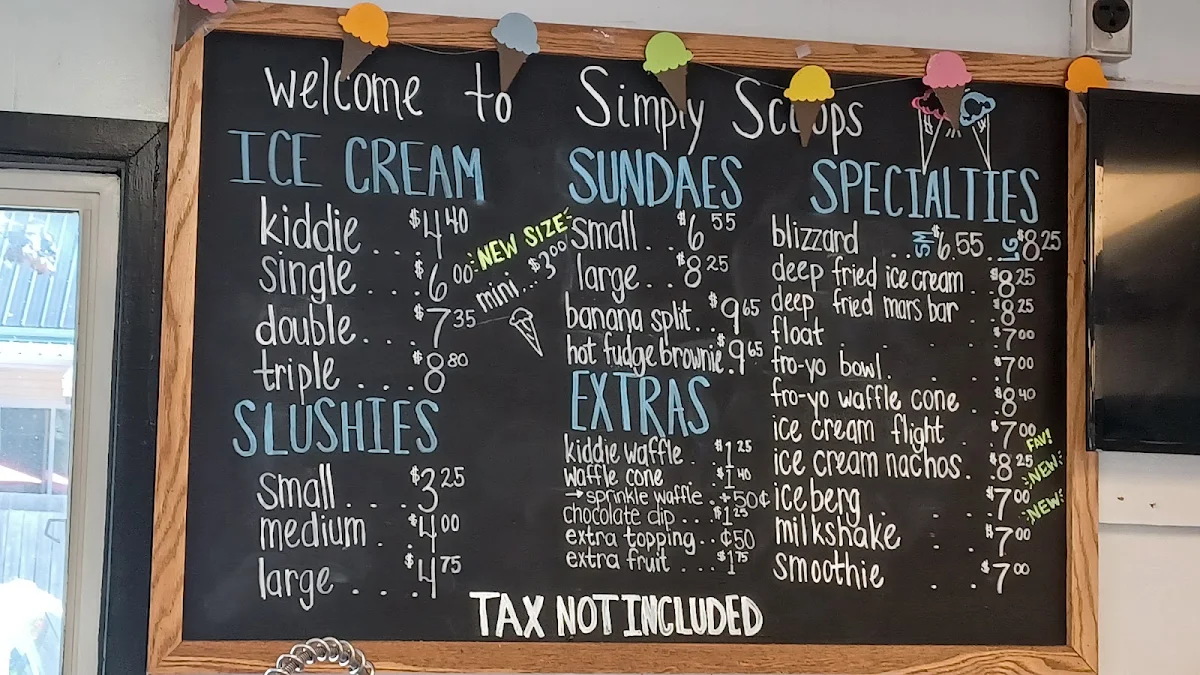 welcome to Simply Scoops
ICE CREAM
kiddie . . . $4.40
single . . . $6.00
double . . . $7.35
triple . . . $8.80
NEW SIZE
mini... $3.00
SLUSHIES
small . . . $3.25
medium . . $4.00
large . . . . $4.75
SUNDAES
small . . $6.55
large . . $8.25
banana split . . $9.65
hot fudge brownie . $9.65
EXTRAS
kiddie waffle . . $1.25
waffle cone . . $1.40
→ sprinkle waffle . + 50¢
chocolate dip . . . $1.25
extra topping . . ¢50
extra fruit . . . . $1.75
SPECIALTIES
blizzard . . SM $6.55 . . LG $8.25
deep fried ice cream . $8.25
deep fried mars bar . . $8.25
float . . . . $7.00
fro-yo bowl . . . . $7.00
fro-yo waffle cone . . $8.40
ice cream flight . . $7.00
ice cream nachos . . $8.25 FAV!
iceberg . . . $7.00 NEW
milkshake . . $7.00 NEW
smoothie . . $7.00
TAX NOT INCLUDED